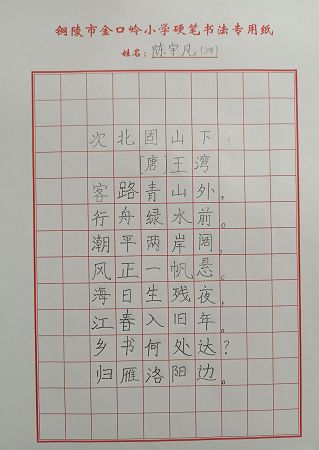 铜陵市金口岭小学硬笔书法专用纸
姓名：陈宇凡(29)
次北固山下
[唐]王湾
客路青山外，
行舟绿水前。
潮平两岸阔，
风正一帆悬。
海日生残夜，
江春入旧年。
乡书何处达？
归雁洛阳边。